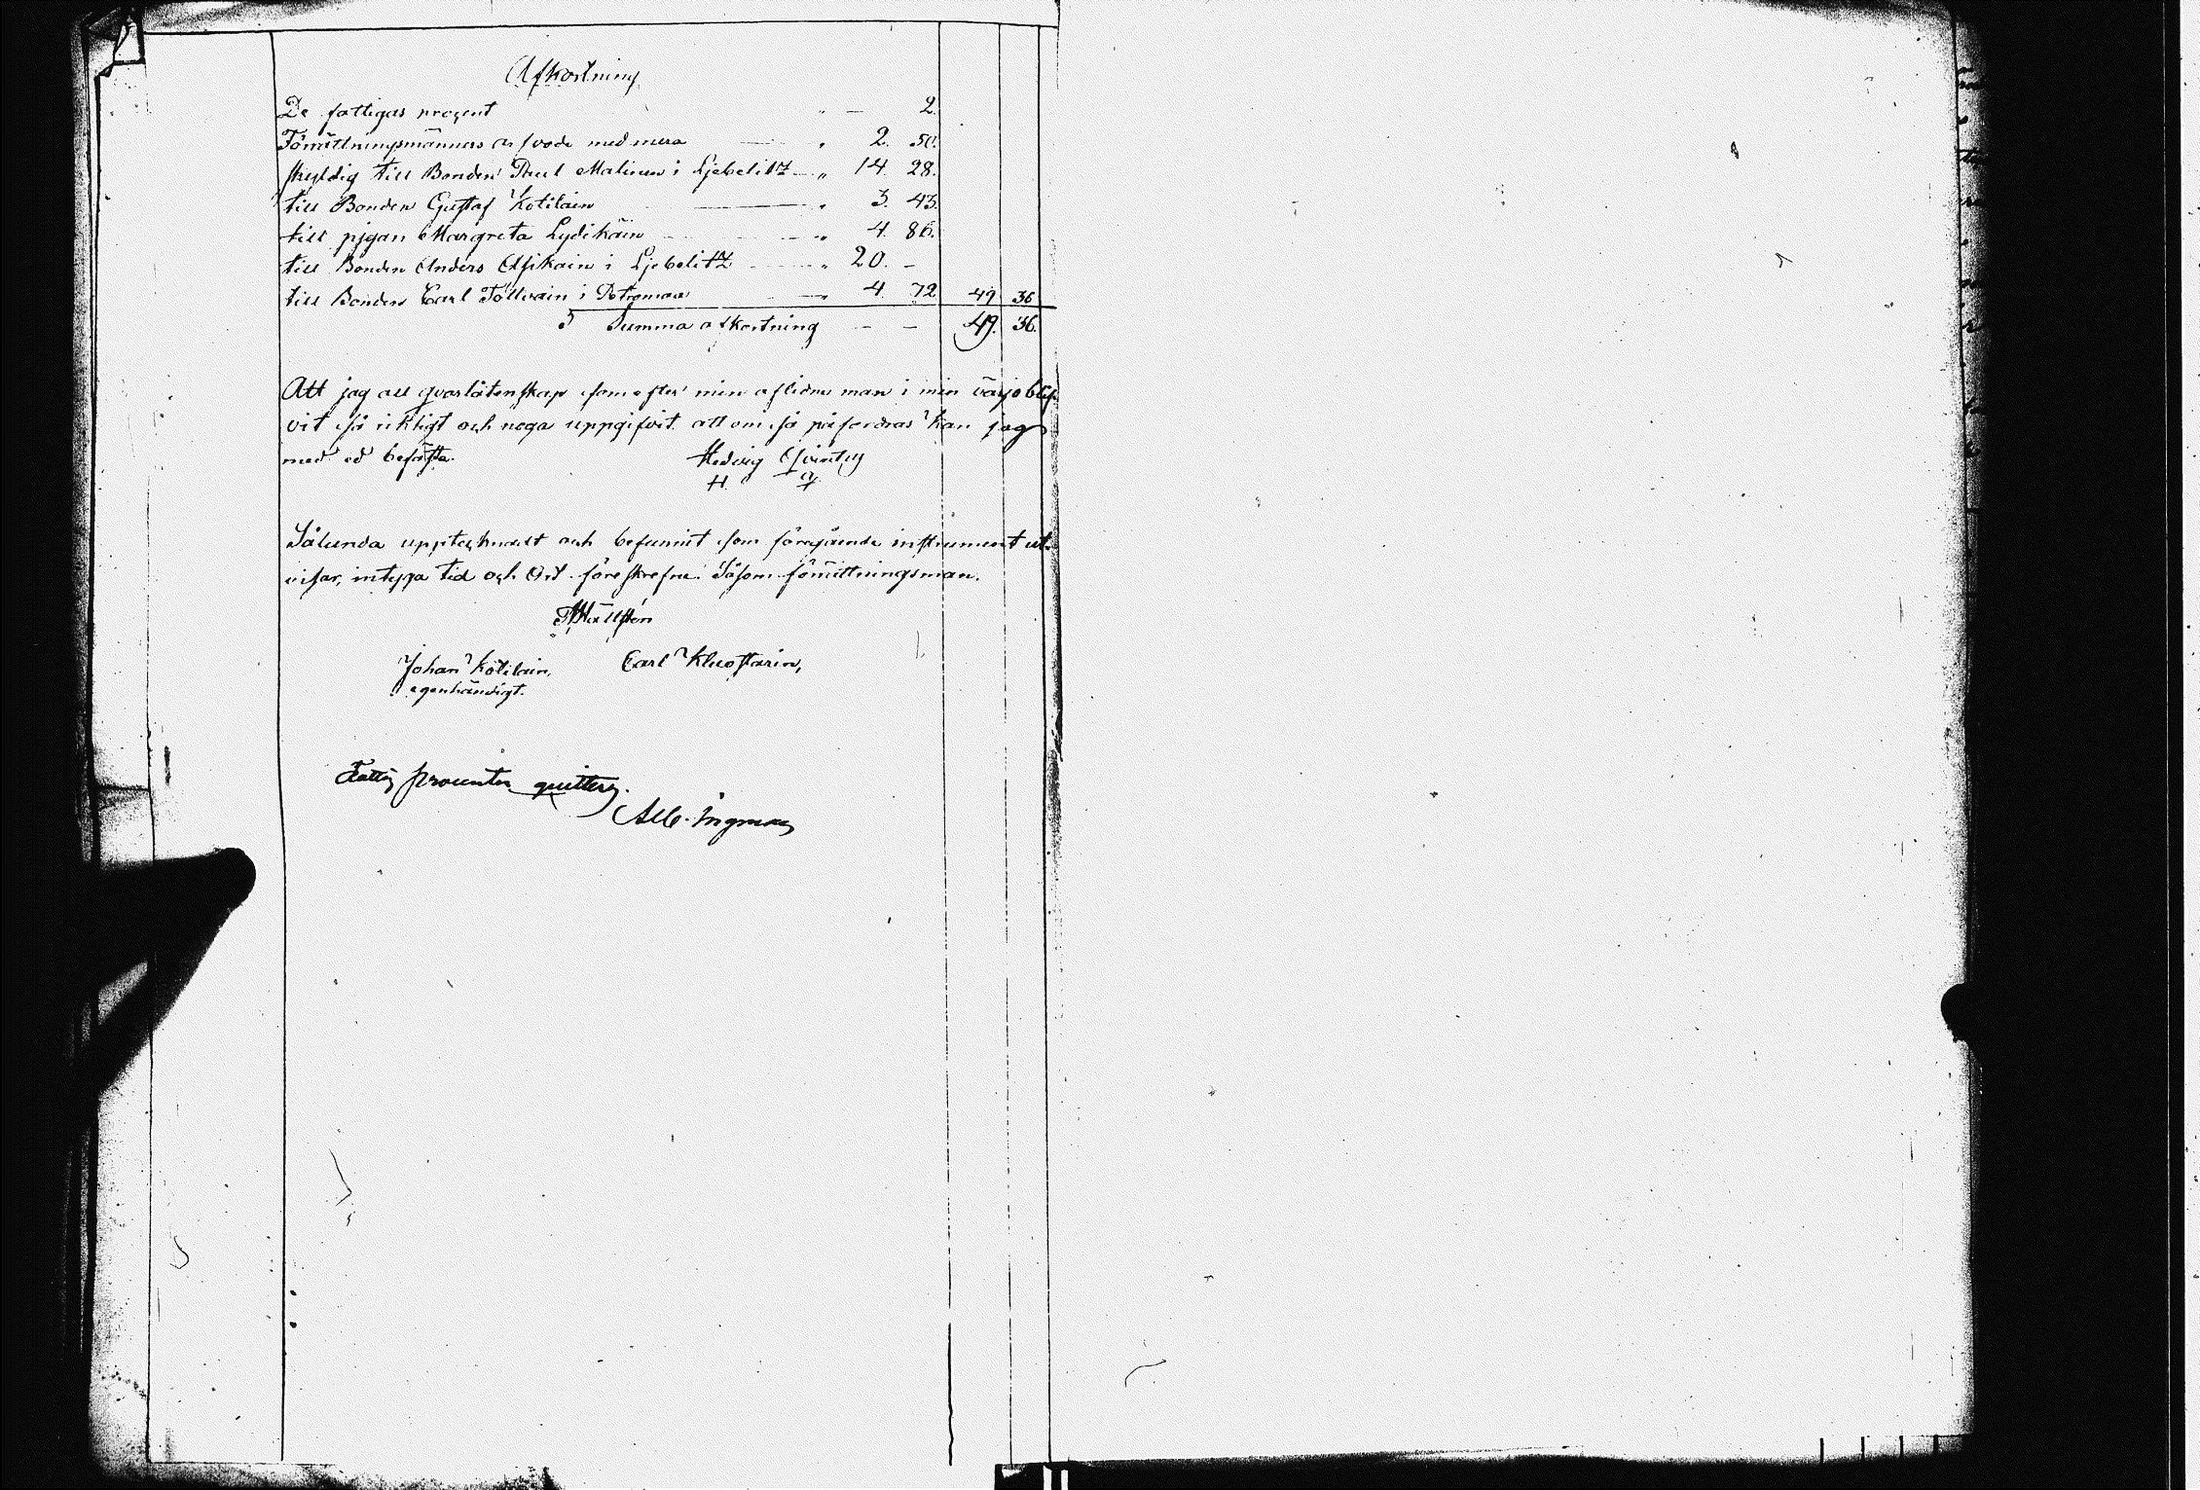 Afkortning
De fattigas procent " — 2.
Förrättningsmännens arfvode med mera — " 2. 50.
skyldig till Bonden Paul Malinen i Ljebelitz — " 14. 28.
till Bonden Gustaf Kotilain — " 3. 43.
till pigan Margreta Lydikäin — " 4. 86.
till Bonden Anders Asikain i Ljebelitz — " 20. —
till Bonden Carl Tolvain i — " 4. 72 49 36
S Summa afkortning — — 49. 36.
Att jag all qvarlåtenskap som efter min aflidne man i min värjo blif-
vit så riktigt och noga uppgifvit att om så påfordras kan jag
med ed befästa. Hedvig
H.
Sålunda upptecknadt och befunnit som föregående instrument ut-
visar, intyga tid och Ort föreskrefne. Såsom förrättningsman.
Hällsten
Johan Kotilain, Carl
egenhändigt.
Fattig procenten quitteras.
Alb. Ingman